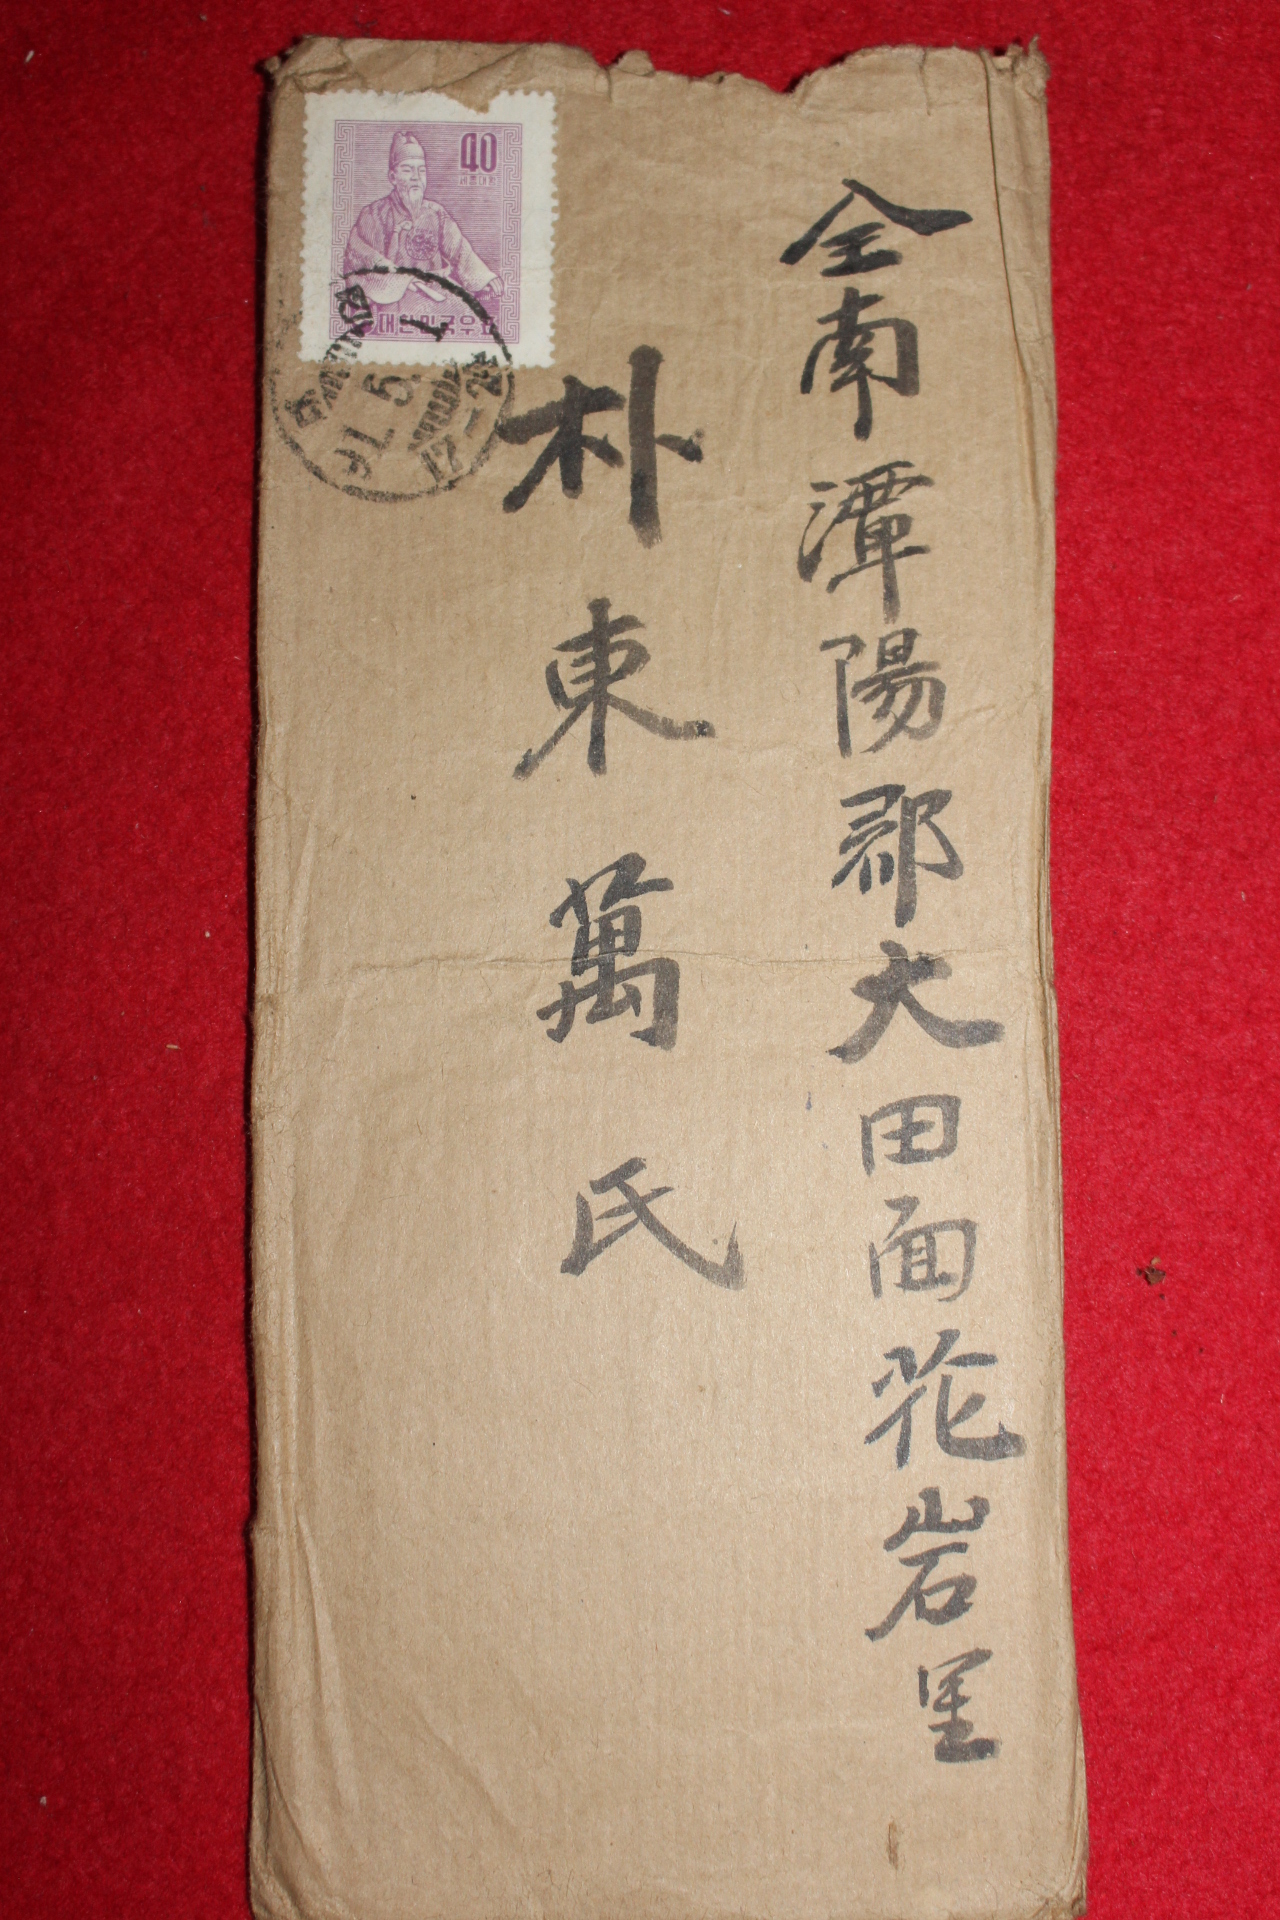 全南潭陽郡大田面花岩里
朴東萬氏
40
세종대왕
대한민국우표